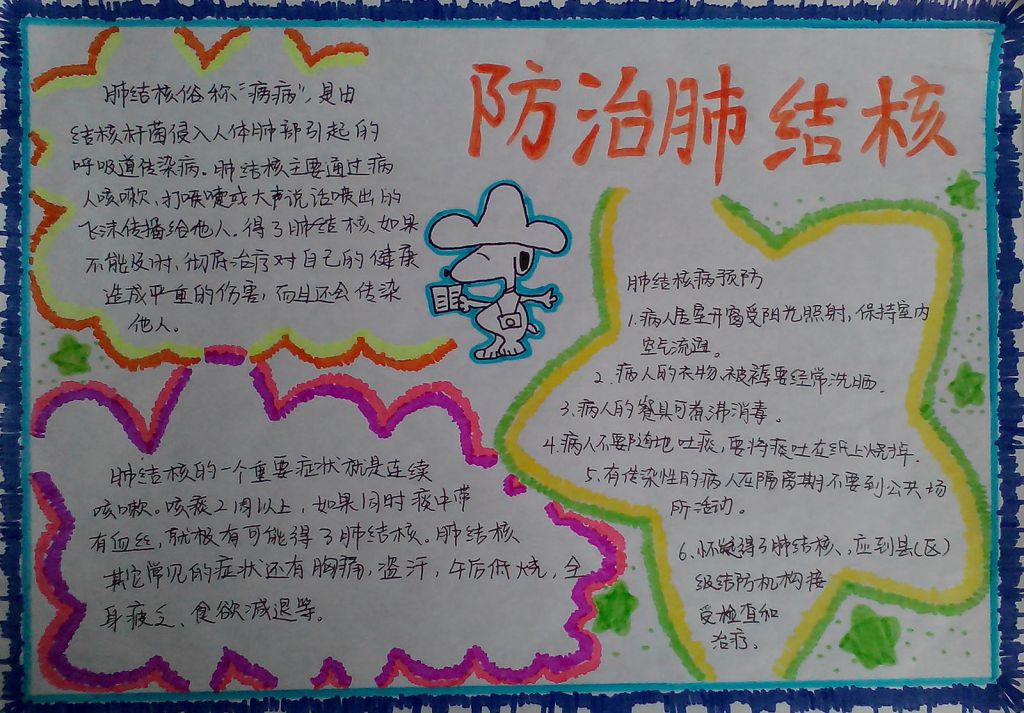 防治肺结核
肺结核俗称“痨病”，是由
结核杆菌侵入人体肺部引起的
呼吸道传染病。肺结核主要通过病
人咳嗽、打喷嚏或大声说话喷出的
飞沫传播给他人。得了肺结核如果
不能及时、彻底治疗对自己的健康
造成严重的伤害，而且还会传染
他人。
肺结核的一个重要症状就是连续
咳嗽。咳痰2周以上，如果同时痰中带
有血丝，就极有可能得了肺结核。肺结核
其它常见的症状还有胸痛，盗汗，午后低烧，全
身疲乏、食欲减退等。
肺结核病预防
1.病人居室开窗受阳光照射，保持室内
空气流通。
2.病人的衣物、被褥要经常洗晒。
3.病人的餐具可煮沸消毒。
4.病人不要随地吐痰，要将痰吐在纸上烧掉。
5.有传染性的病人在隔离期不要到公共场
所活动。
6.怀疑得了肺结核、应到县(区)
级结防机构接
受检查和
治疗。